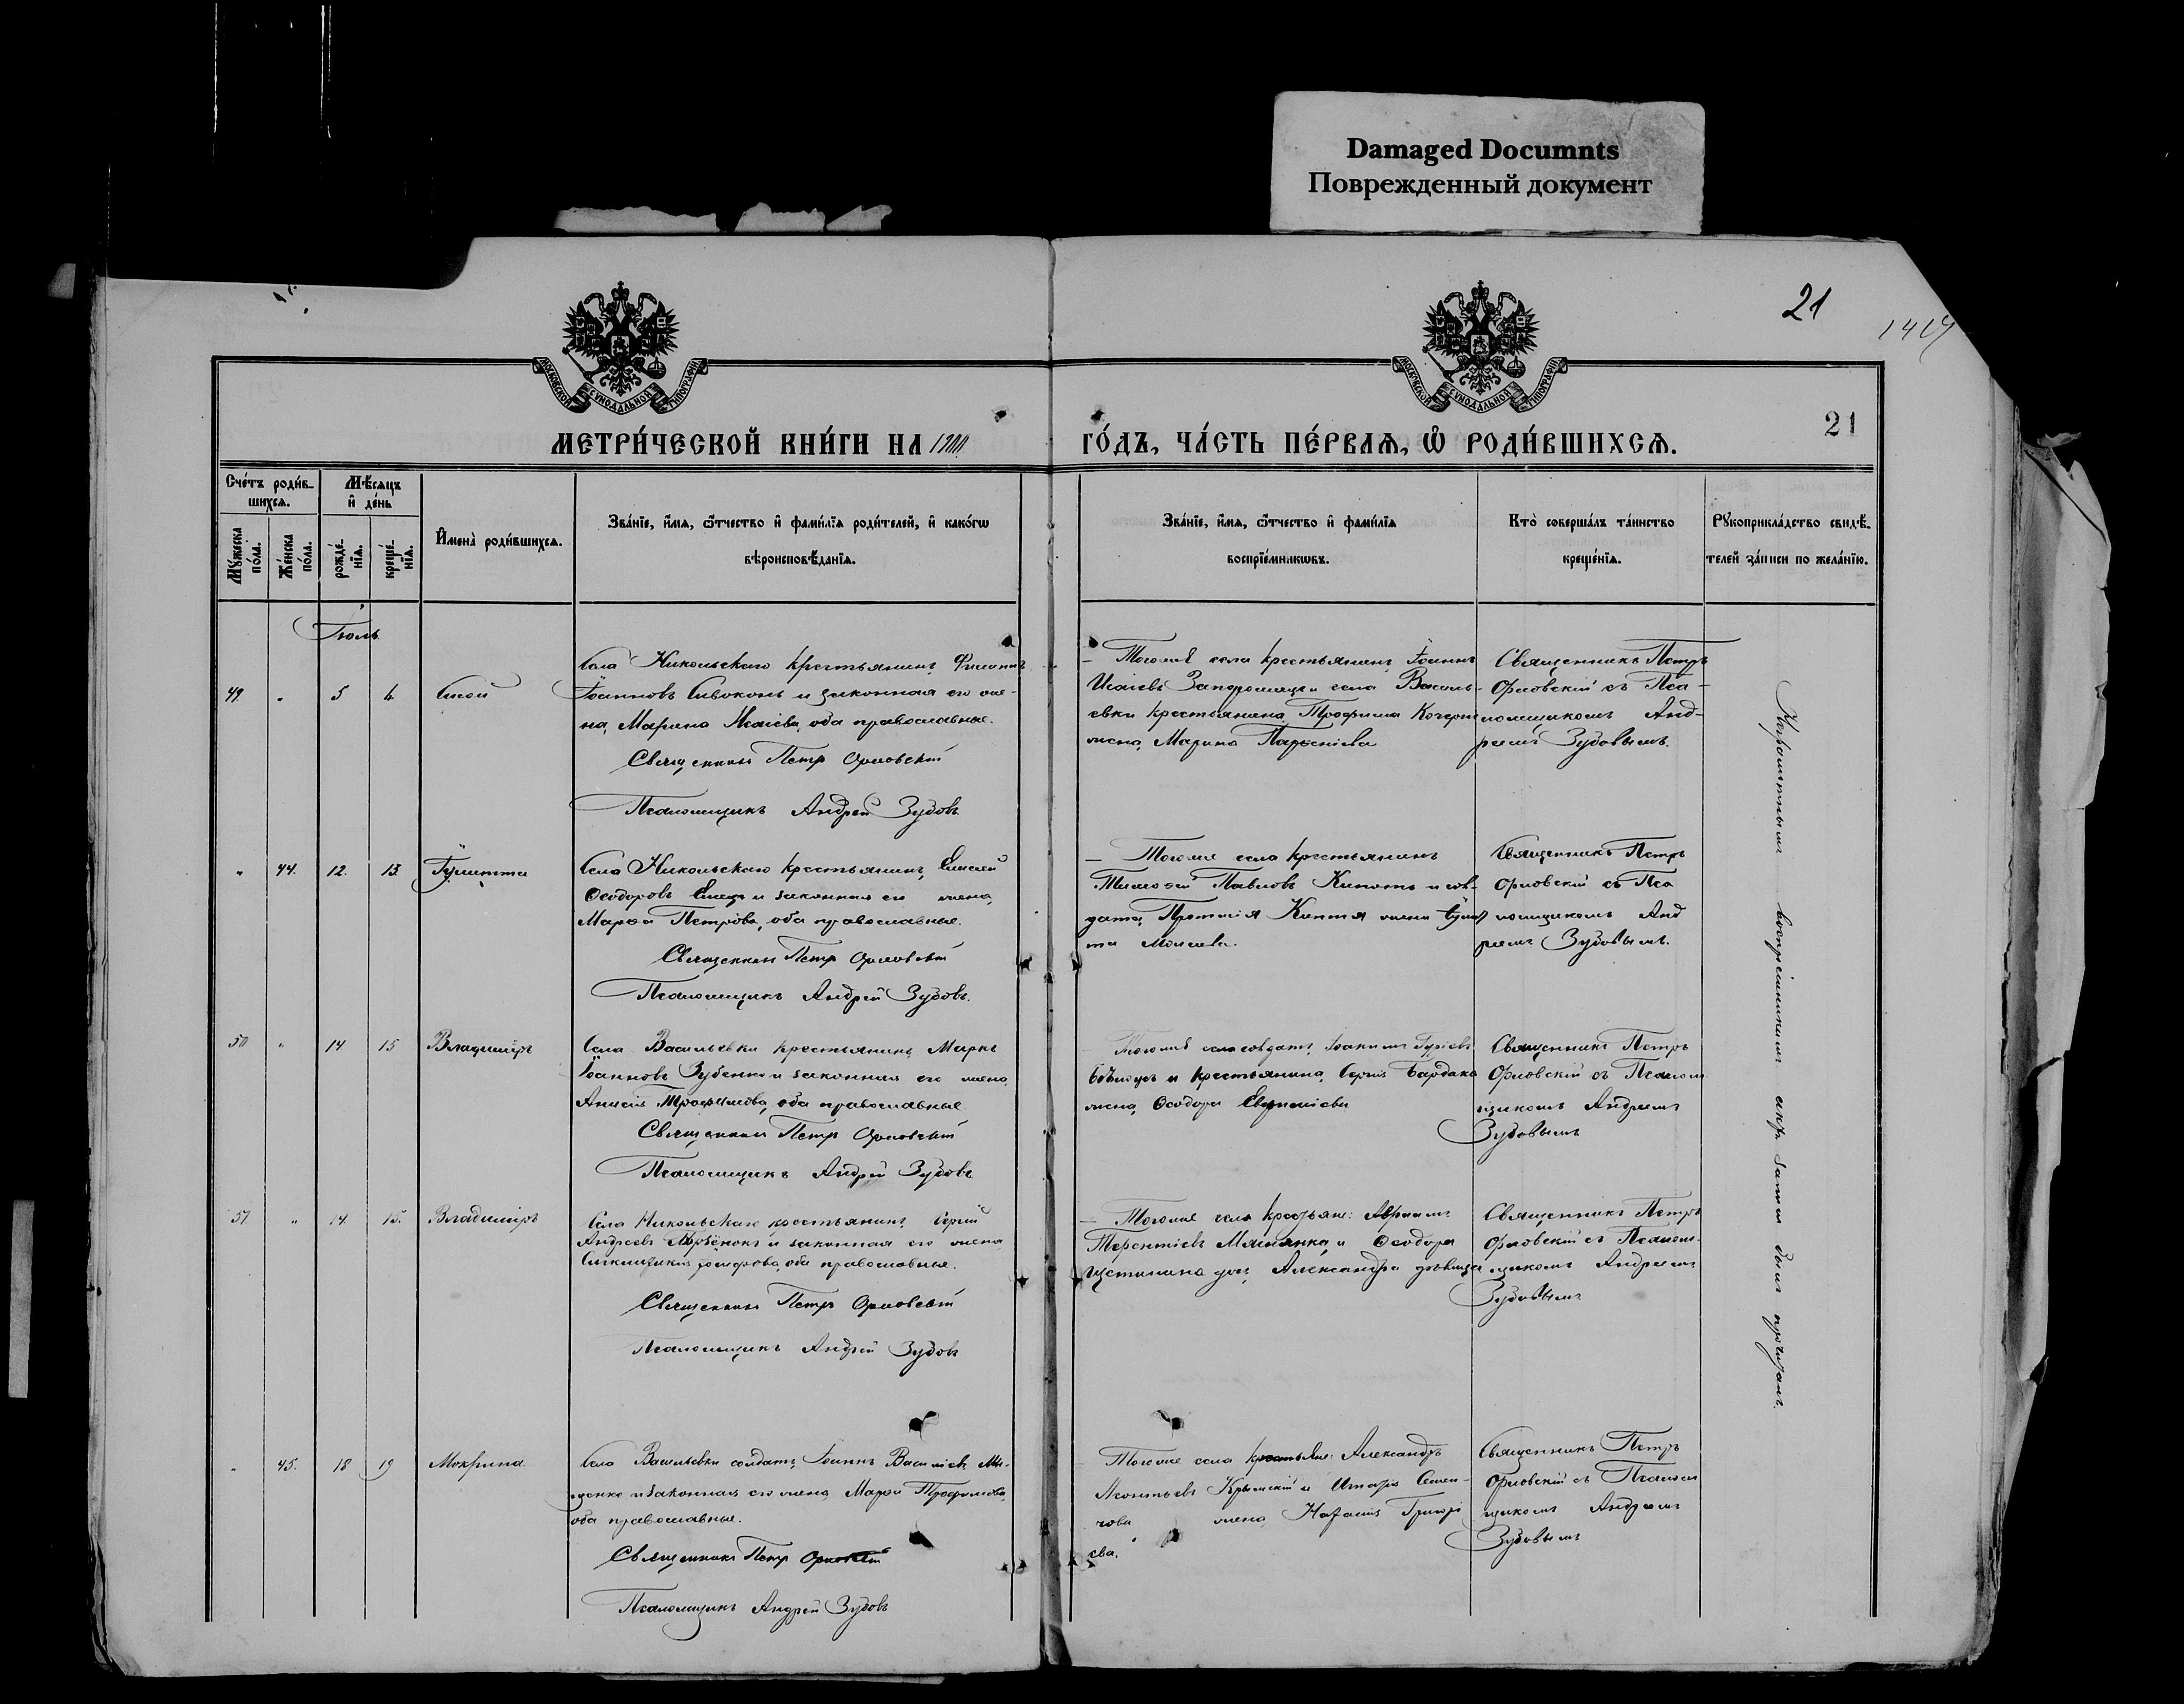 Damaged Documnts
Поврежденный документ
21
МОСКОВСКОЙ СУНОДАЛЬНОЙ ТИПОГРАФІИ
МОСКОВСКОЙ СУНОДАЛЬНОЙ ТИПОГРАФІИ
21
МЕТРИ́ЧЕСКОЙ КНИ́ГИ НА
ГО́ДЪ, ЧА́СТЬ ПЕ́РВАѦ, Ѿ РОДИ́ВШИХСѦ.
Сче́тъ роди́в-
шихсѧ.
Мꙋ́жеска
по́ла.
Же́нска
по́ла.
Мѣ́сяцъ
и де́нь
рожде́-
нїѧ.
креще́-
нїѧ.
Имена̀ роди́вшихсѧ.
Зва́нїе, и́мѧ, ѻ́тчество и фами́лїѧ роди́телей, и како́гѡ
вѣроисповѣ́данїѧ.
Зва́нїе, и́мѧ, ѻ́тчество и фами́лїѧ
воспрїе́мникѡвъ.
Кто̀ соверша́лъ та́инство
креще́нїѧ.
Рꙋкоприкла́дство свидѣ́-
телей за́писи по жела́нїю.
Іюль
49. " 5 6 Сисой
Села Никольскаго крестьянинъ Филиппъ
Іоанновъ Сивоконь и законная его же-
на, Марина Исаіева, оба православные.
Священникъ Петръ Орловскій
Псаломщикъ Андрей Зубовъ.
Тогоже села крестьянинъ Іоаннъ
Исаіевъ Запорожецъ и села Василь-
евки крестьянина Трофима
жена, Марина Парѳеніева
Священникъ Петръ
Орловскій съ Пса-
ломщикомъ Анд-
реемъ Зубовымъ.
" 44. 12. 13. Іулитта
Села Никольскаго крестьянинъ, Елисей
Ѳеодоровъ и законная его жена,
Марѳа Петрова, оба православные.
Священникъ Петръ Орловскій
Псаломщикъ Андрей Зубовъ.
Тогоже села крестьянинъ
Тимоѳей Павловъ и сол-
дата, жена
Моисеева.
Священникъ Петръ
Орловскій съ Пса
ломщикомъ Анд
реемъ Зубовымъ.
50 " 14 15 Владиміръ
Села Васильевки крестьянинъ Маркъ
Іоанновъ Зубенко и законная его жена,
Анисія Трофимова, оба православные.
Священникъ Петръ Орловскій
Псаломщикъ Андрей Зубовъ.
Тогоже села солдатъ, Іоакимъ Гуріевъ
и крестьянина, Сергія Бардака
жена, Ѳеодора Евфиміева
Священникъ Петръ
Орловскій съ Псалом
щикомъ Андреемъ
Зубовымъ
51. " 14. 15. Владиміръ
Села Никольскаго крестьянинъ, Сергій
Андреевъ и законная его жена
оба православные.
Священникъ Петръ Орловскій
Псаломщикъ Андрей Зубовъ
Тогоже села крестьяне: Авраамъ
Терентіевъ и Ѳеодора
Устинина дочь, Александра дѣвица
Священникъ Петръ
Орловскій съ Псалом-
щикомъ Андреемъ
Зубовымъ
" 45. 18 19 Мокрина
Села Васильевки солдатъ, Іоаннъ Василіевъ
и законная его жена, Марѳа Трофимова,
оба православные.
Священникъ Петръ Орловскій
Псаломщикъ Андрей Зубовъ
Тогоже села крестьяне: Александръ
Леонтьевъ Крымскій и Игнатія Семен-
чова жена, Наталія Григорі
ева.
Священникъ Петръ
Орловскій съ Псалом
щикомъ Андреемъ
Зубовымъ
Неграмотнымъ воспріемникамъ запись была прочитана.